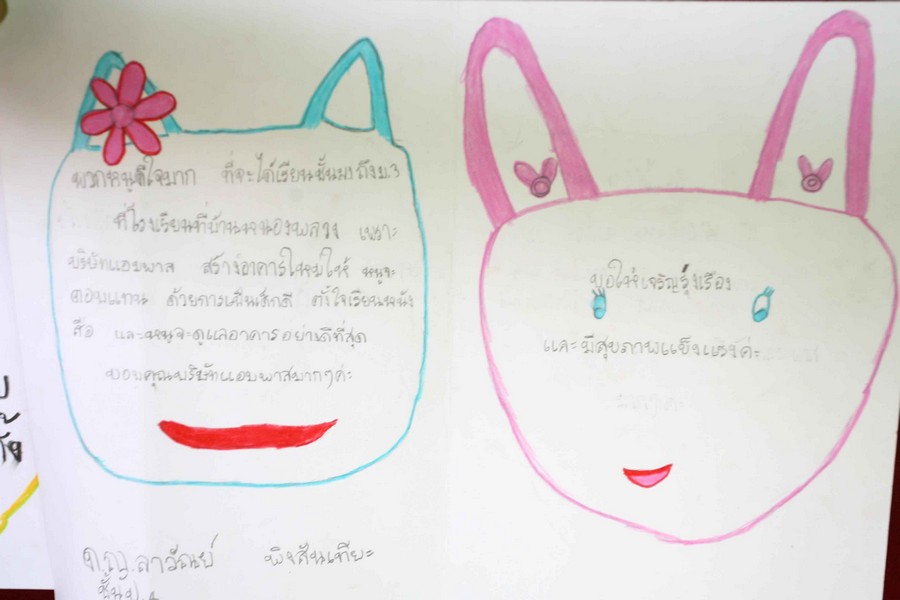 พวกหนูดีใจมาก ที่จะได้เรียนชั้นม.1ถึงม.3
ที่โรงเรียนที่บ้านหนองพลวง เพราะ
บริษัทแอมพาส สร้างอาคารใหม่ให้ หนูจะ
ตอบแทน ด้วยการเป็นเด็กดี ตั้งใจเรียนหนัง
สือ และหนูจะดูแลอาคารอย่างดีที่สุด
ขอบคุณบริษัทแอมพาสมากๆค่ะ
ขอให้เจริญรุ่งเรือง
และมีสุขภาพแข็งแรงค่ะ
ด.ญ.ลาวัณย์
ชั้นป.4